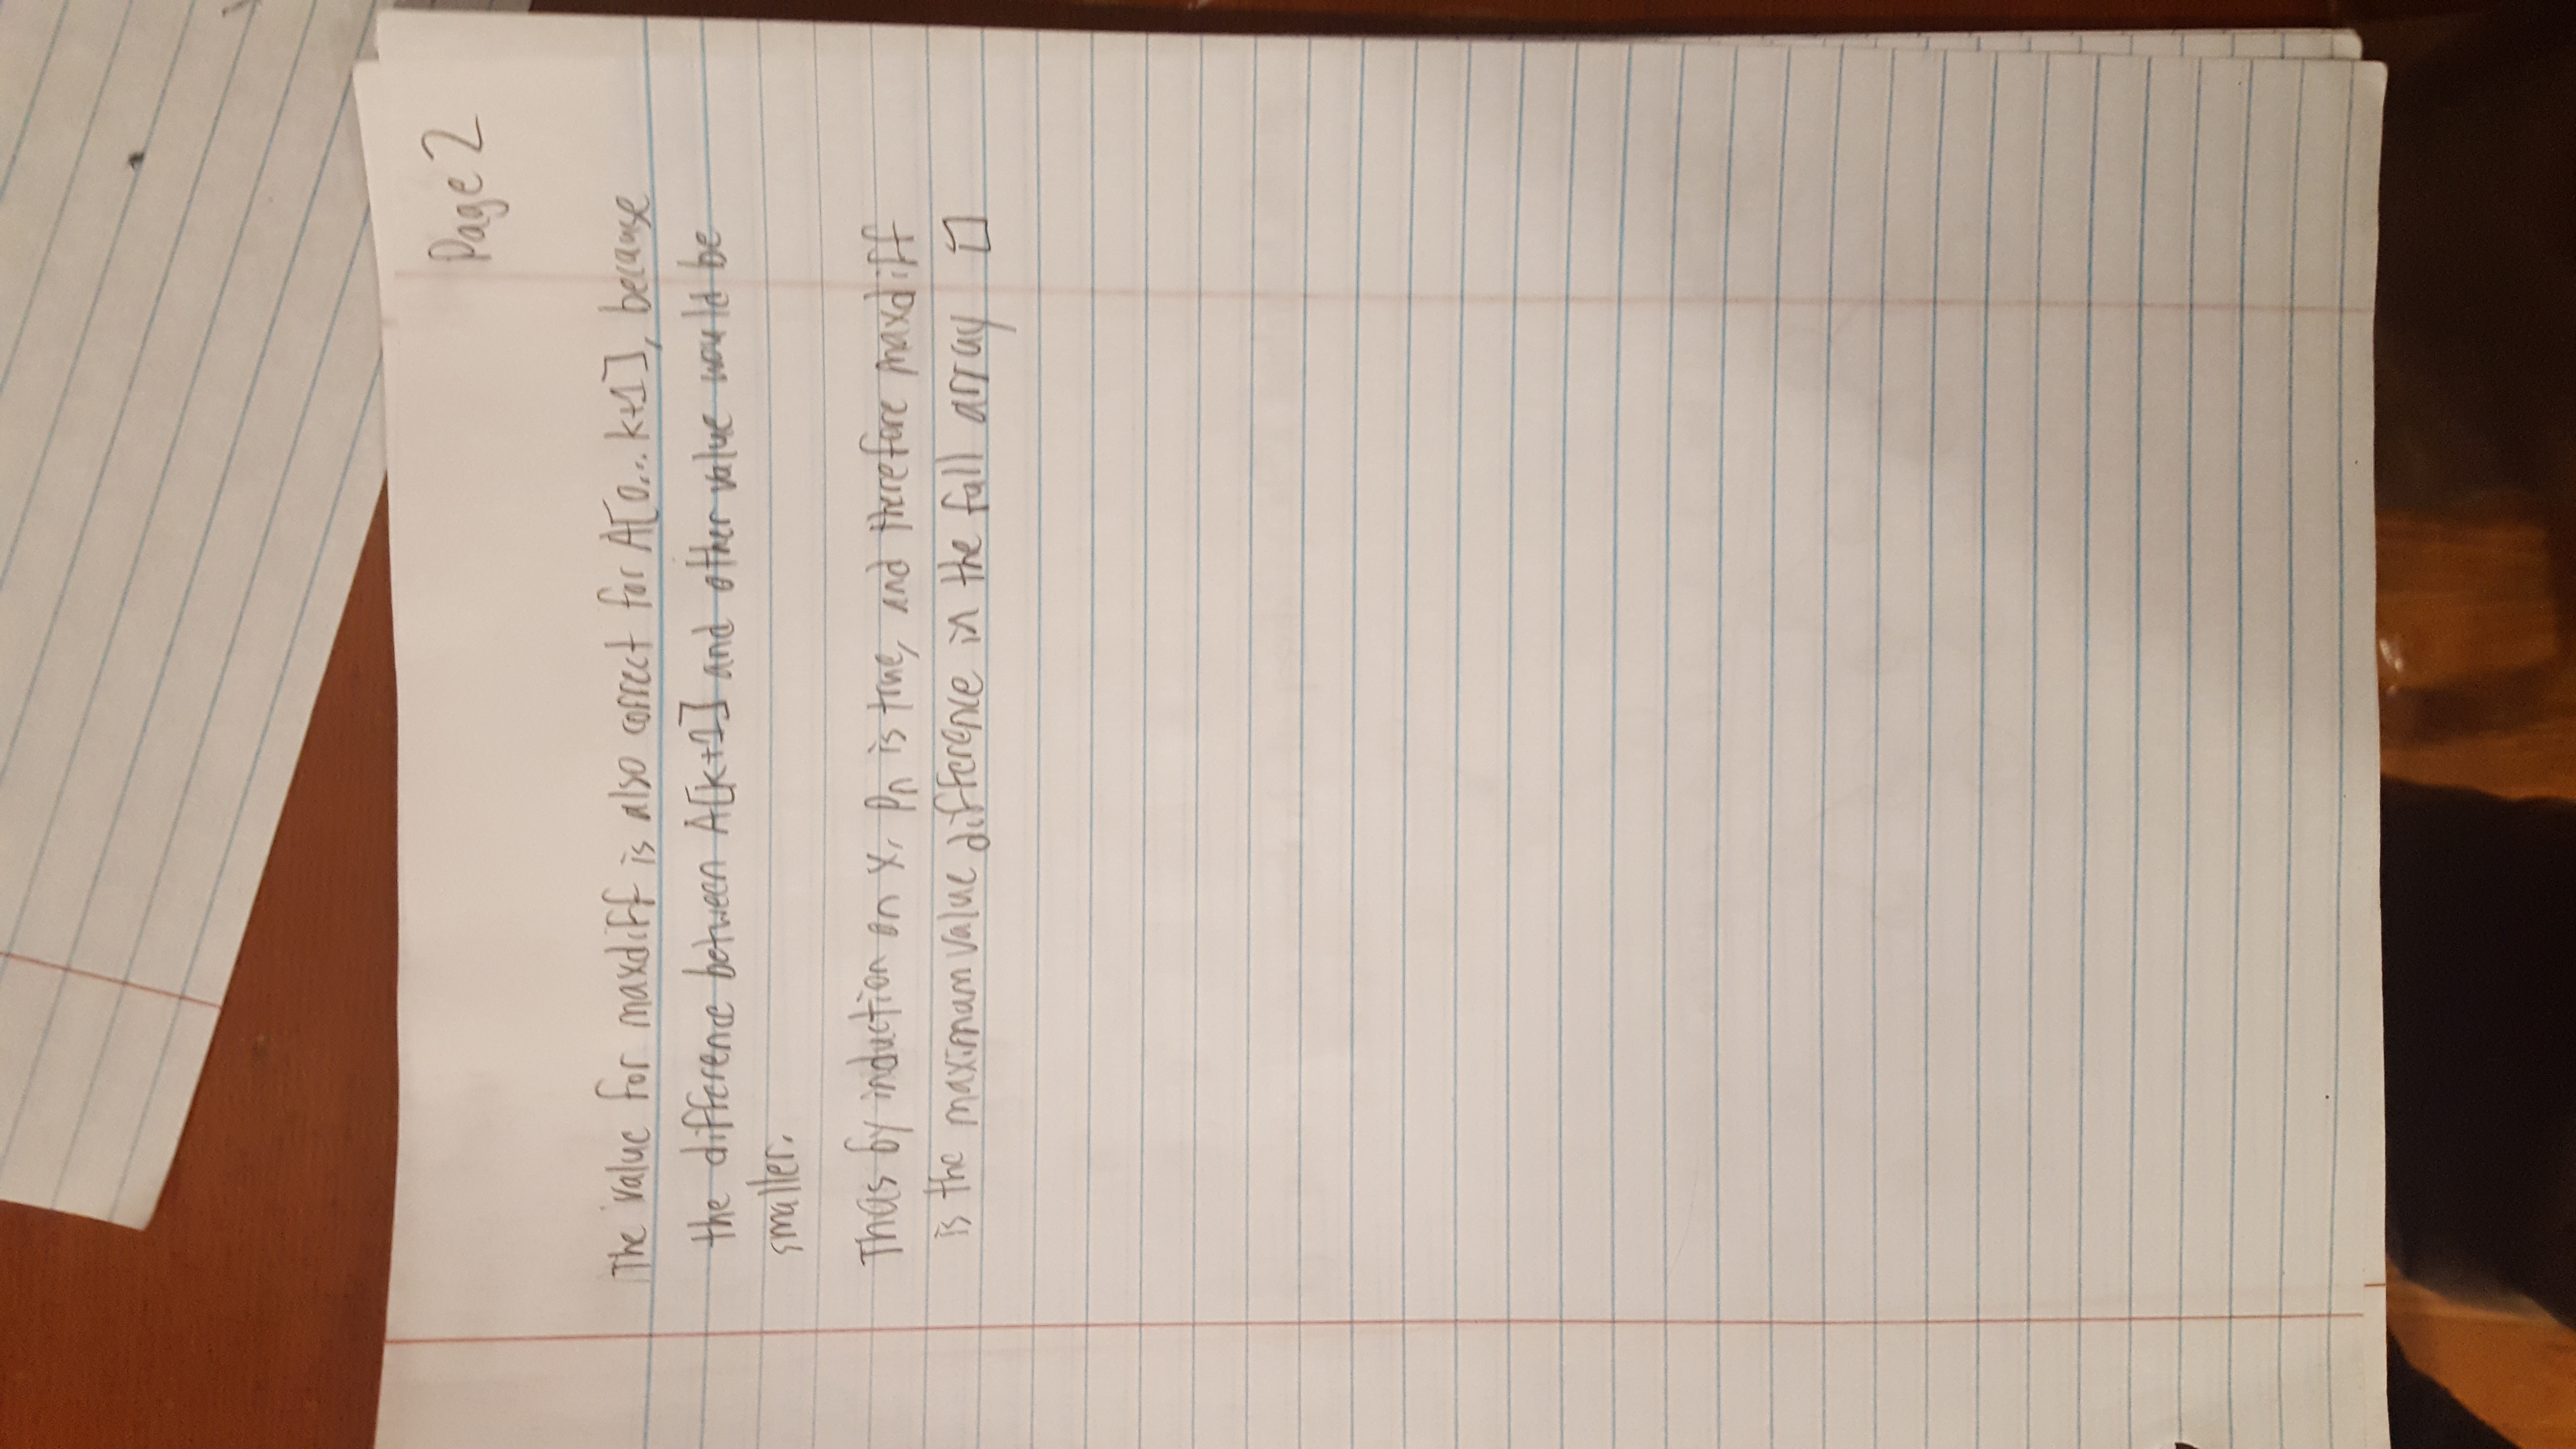 Page 2
The value for maxdiff is also correct for A[0...k+1], because
the difference between A[k+1] and other value would be
smaller.
Thus by induction on x, Pn is true, and therefore maxdiff
is the maximum value difference in the full array □